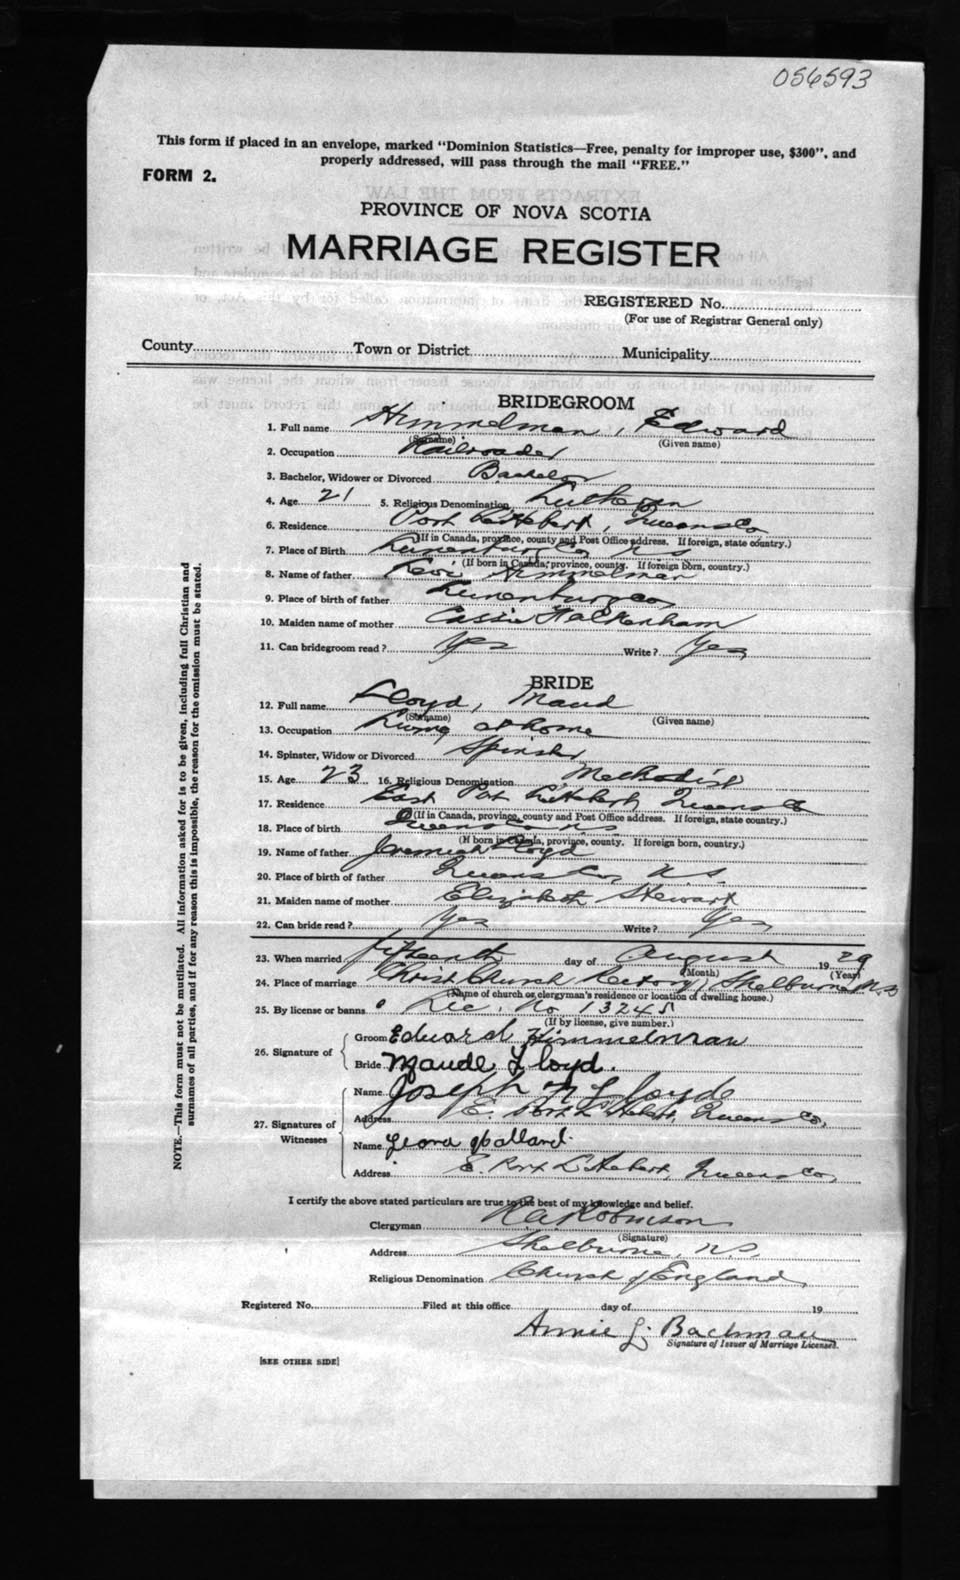 056593
This form if placed in an envelope, marked "Dominion Statistics—Free, penalty for improper use, $300", and
properly addressed, will pass through the mail "FREE."
FORM 2.
PROVINCE OF NOVA SCOTIA
MARRIAGE REGISTER
REGISTERED No.
(For use of Registrar General only)
County Town or District Municipality
BRIDEGROOM
1. Full name Himmelman, Edward
(Surname) (Given name)
2. Occupation Railroader
3. Bachelor, Widower or Divorced Bachelor
4. Age 21 5. Religious Denomination Lutheran
6. Residence Port L'Hebert, Queens Co
(If in Canada, province, county and Post Office address. If foreign, state country.)
7. Place of Birth Lunenburg Co NS
(If born in Canada, province, county. If foreign born, country.)
8. Name of father Levi Himmelman
9. Place of birth of father Lunenburg Co,
10. Maiden name of mother Cassie Walkenham
11. Can bridegroom read? Yes Write? Yes
BRIDE
12. Full name Lloyd, Maud
(Surname) (Given name)
13. Occupation Living at home
14. Spinster, Widow or Divorced Spinster
15. Age 23 16. Religious Denomination Methodist
17. Residence East Port L'Hebert, Queens Co
(If in Canada, province, county and Post Office address. If foreign, state country.)
18. Place of birth Queens Co NS
(If born in Canada, province, county. If foreign born, country.)
19. Name of father Jeremiah Lloyd
20. Place of birth of father Queens Co, N.S.
21. Maiden name of mother Elizabeth Stewart
22. Can bride read? Yes Write? Yes
23. When married fifteenth day of August 1929
(Month) (Year)
24. Place of marriage Christ Church Rectory, Shelburne N.S
(Name of church or clergyman's residence or location of dwelling house.)
25. By license or banns Lic. No 13245
(If by license, give number.)
26. Signature of Groom Edward Himmelman
Bride Maude Lloyd.
27. Signatures of Witnesses Name Joseph N Lloyde
Address E. Port L'Hebert, Queens Co,
Name Leona
Address E. Port L'Hebert, Queens Co,
I certify the above stated particulars are true to the best of my knowledge and belief.
Clergyman Robinson
(Signature)
Address Shelburne, N.S.
Religious Denomination Church of England
Registered No. Filed at this office day of 19
Annie L. Bachman
Signature of Issuer of Marriage Licenses.
[SEE OTHER SIDE]
NOTE.—This form must not be mutilated. All information asked for is to be given, including full Christian and
surnames of all parties, and if for any reason this is impossible, the reason for the omission must be stated.